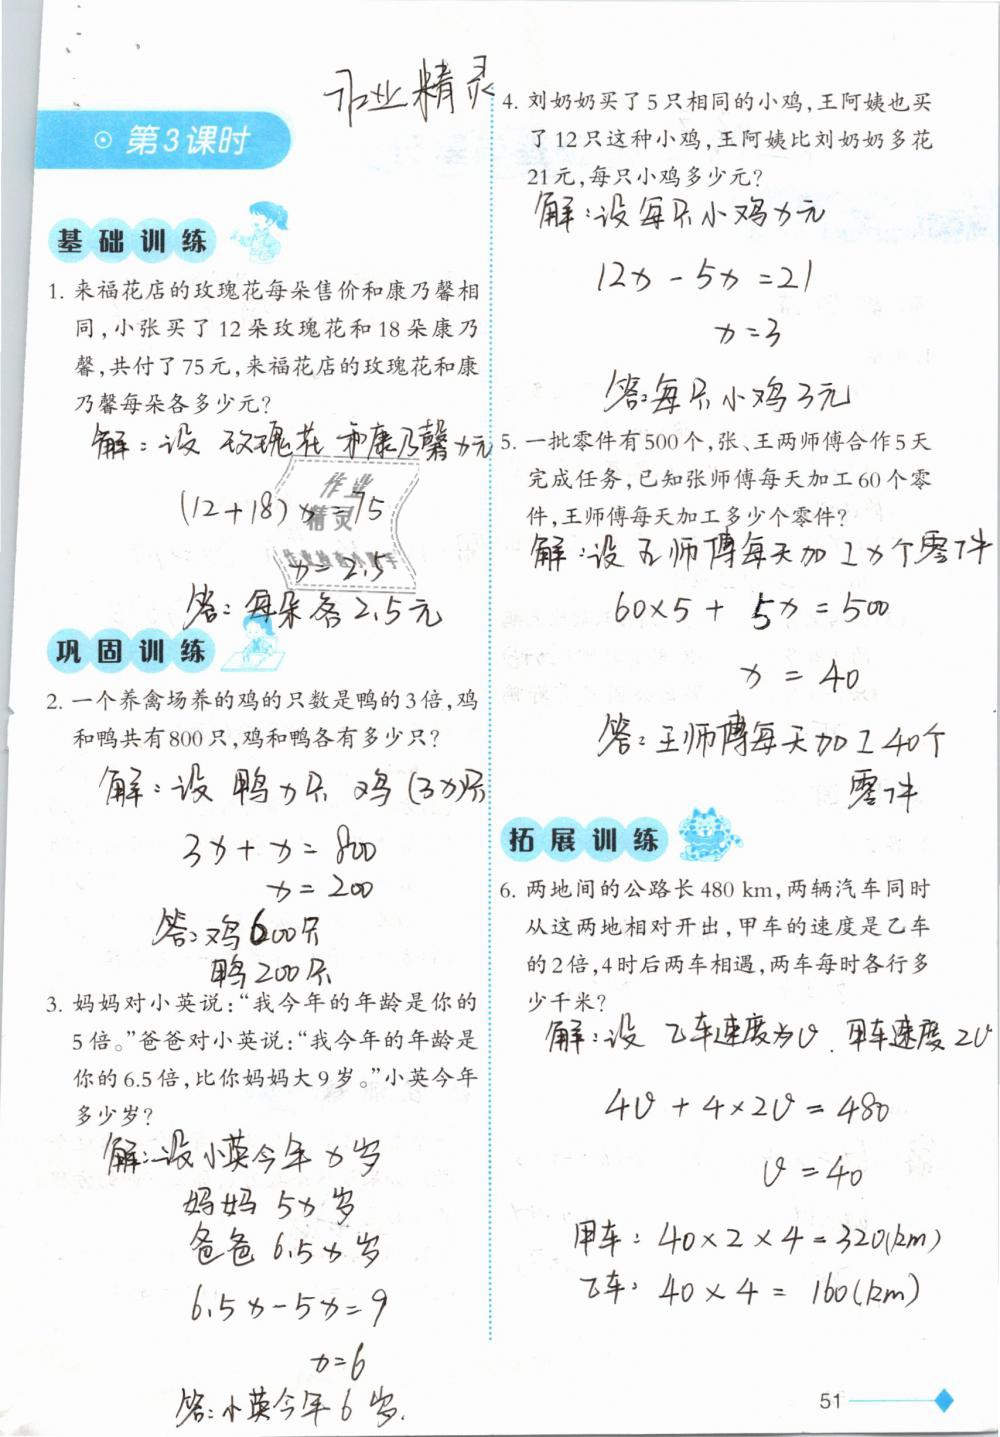 作业精灵
第3课时
基础训练
1. 来福花店的玫瑰花每朵售价和康乃馨相
同,小张买了12朵玫瑰花和18朵康乃
馨,共付了75元,来福花店的玫瑰花和康
乃馨每朵各多少元?
解:设 玫瑰花 和康乃馨x元
(12+18)x=75
x=2.5
作业
精灵
答:每朵各2.5元
巩固训练
2. 一个养禽场养的鸡的只数是鸭的3倍,鸡
和鸭共有800只,鸡和鸭各有多少只?
解:设 鸭x只 鸡(3x)只
3x+x=800
x=200
答:鸡600只
鸭200只
3. 妈妈对小英说:“我今年的年龄是你的
5倍。”爸爸对小英说:“我今年的年龄是
你的6.5倍,比你妈妈大9岁。”小英今年
多少岁?
解:设小英今年x岁
妈妈 5x岁
爸爸 6.5x岁
6.5x-5x=9
x=6
答:小英今年6岁.
4. 刘奶奶买了5只相同的小鸡,王阿姨也买
了12只这种小鸡,王阿姨比刘奶奶多花
21元,每只小鸡多少元?
解:设每只小鸡x元
12x-5x=21
x=3
答:每只小鸡3元
5. 一批零件有500个,张、王两师傅合作5天
完成任务,已知张师傅每天加工60个零
件,王师傅每天加工多少个零件?
解:设王师傅每天加工x个零件
60×5+5x=500
x=40
答:王师傅每天加工40个
零件
拓展训练
6. 两地间的公路长480 km,两辆汽车同时
从这两地相对开出,甲车的速度是乙车
的2倍,4时后两车相遇,两车每时各行多
少千米?
解:设 乙车速度为v.甲车速度2v
4v+4×2v=480
v=40
甲车:40×2×4=320(km)
乙车:40×4=160(km)
51